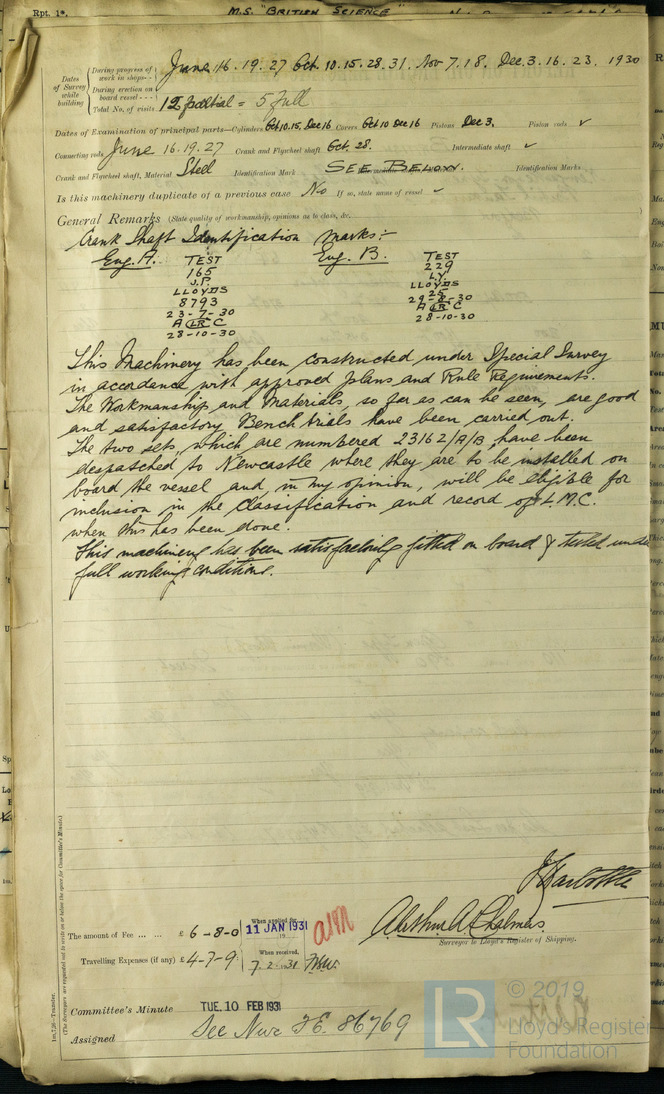 Rpt. 1*.
M.S. "BRITISH SCIENCE"
Dates of Survey while building
During progress of work in shops-- June 16. 19. 27 Oct. 10. 15. 28. 31. Nov 7. 18. Dec. 3. 16. 23. 1930
During erection on board vessel---
Total No. of visits 12 partial = 5 full
Dates of Examination of principal parts—Cylinders Oct 10.15. Dec 16 Covers Oct 10 Dec 16 Pistons Dec 3. Piston rods ✓
Connecting rods June 16. 19. 27 Crank and Flywheel shaft Oct. 28. Intermediate shaft ✓
Crank and Flywheel shaft, Material Steel Identification Mark SEE BELOW. Identification Marks
Is this machinery duplicate of a previous case No If so, state name of vessel ✓
General Remarks (State quality of workmanship, opinions as to class, &c.
Crank Shaft Identification Marks:-
Eng. A. TEST Eng. B. TEST
165 229
J.P. L.Y.
LLOYDS LLOYDS
8793 25
23-7-30 29-8-30
A LR C A LR C
28-10-30 28-10-30
This Machinery has been constructed under Special Survey
in accordance with approved plans and Rule Requirements.
The Workmanship and Materials so far as can be seen, are good
and satisfactory Bench trials have been carried out.
The two sets, which are numbered 23162/A/B have been
despatched to Newcastle where they are to be installed on
board the vessel and, in my opinion, will be eligible for
inclusion in the Classification and record of L.M.C.
when this has been done.
This machinery has been satisfactorily fitted on board & tested under
full working conditions.
The amount of Fee ... ... £ 6-8-0 When applied for, 11 JAN 1931
Travelling Expenses (if any) £ 4-7-9 When received, 7.2.1931
Arthur A. Chalmers.
Surveyor to Lloyd's Register of Shipping.
Committee's Minute TUE. 10 FEB 1931
Assigned See Nwc F.E. 86769
1m.7.26—Transfer.
(The Surveyors are requested not to write on or below the space for Committee's Minute.)
LR
© 2019
Lloyd's Register
Foundation